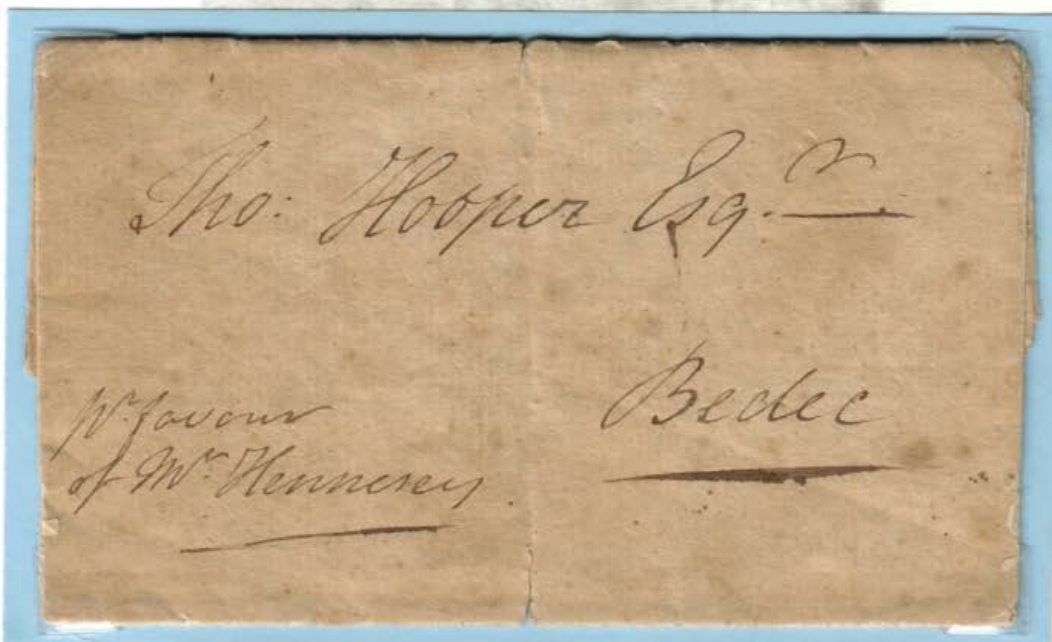 Tho: Hooper Esqr.
Bedec
pr. favour
of Mr Hennesey.